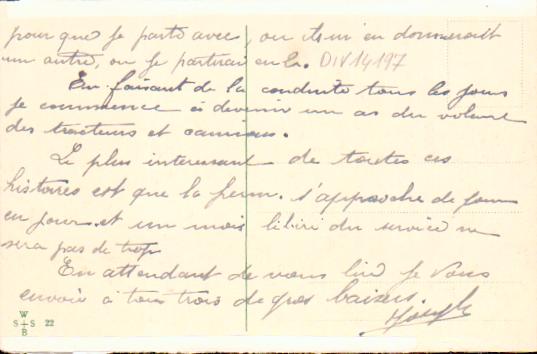 pour que je parte avec, ou ils m'en donneront
un autre, ou je partirai en
DIV14197
En faisant de la conduite tous les jours
je commence à devenir un as du volant
des tracteurs et camions.
Le plus interessant de toutes ces
histoires est que la perm. s'approche de jour
en jour et un mois libéré du service ne
sera pas de trop
En attendant de vous lire je vous
envoie à tous trois de gros baisers.
Joseph
W
S S 22
B